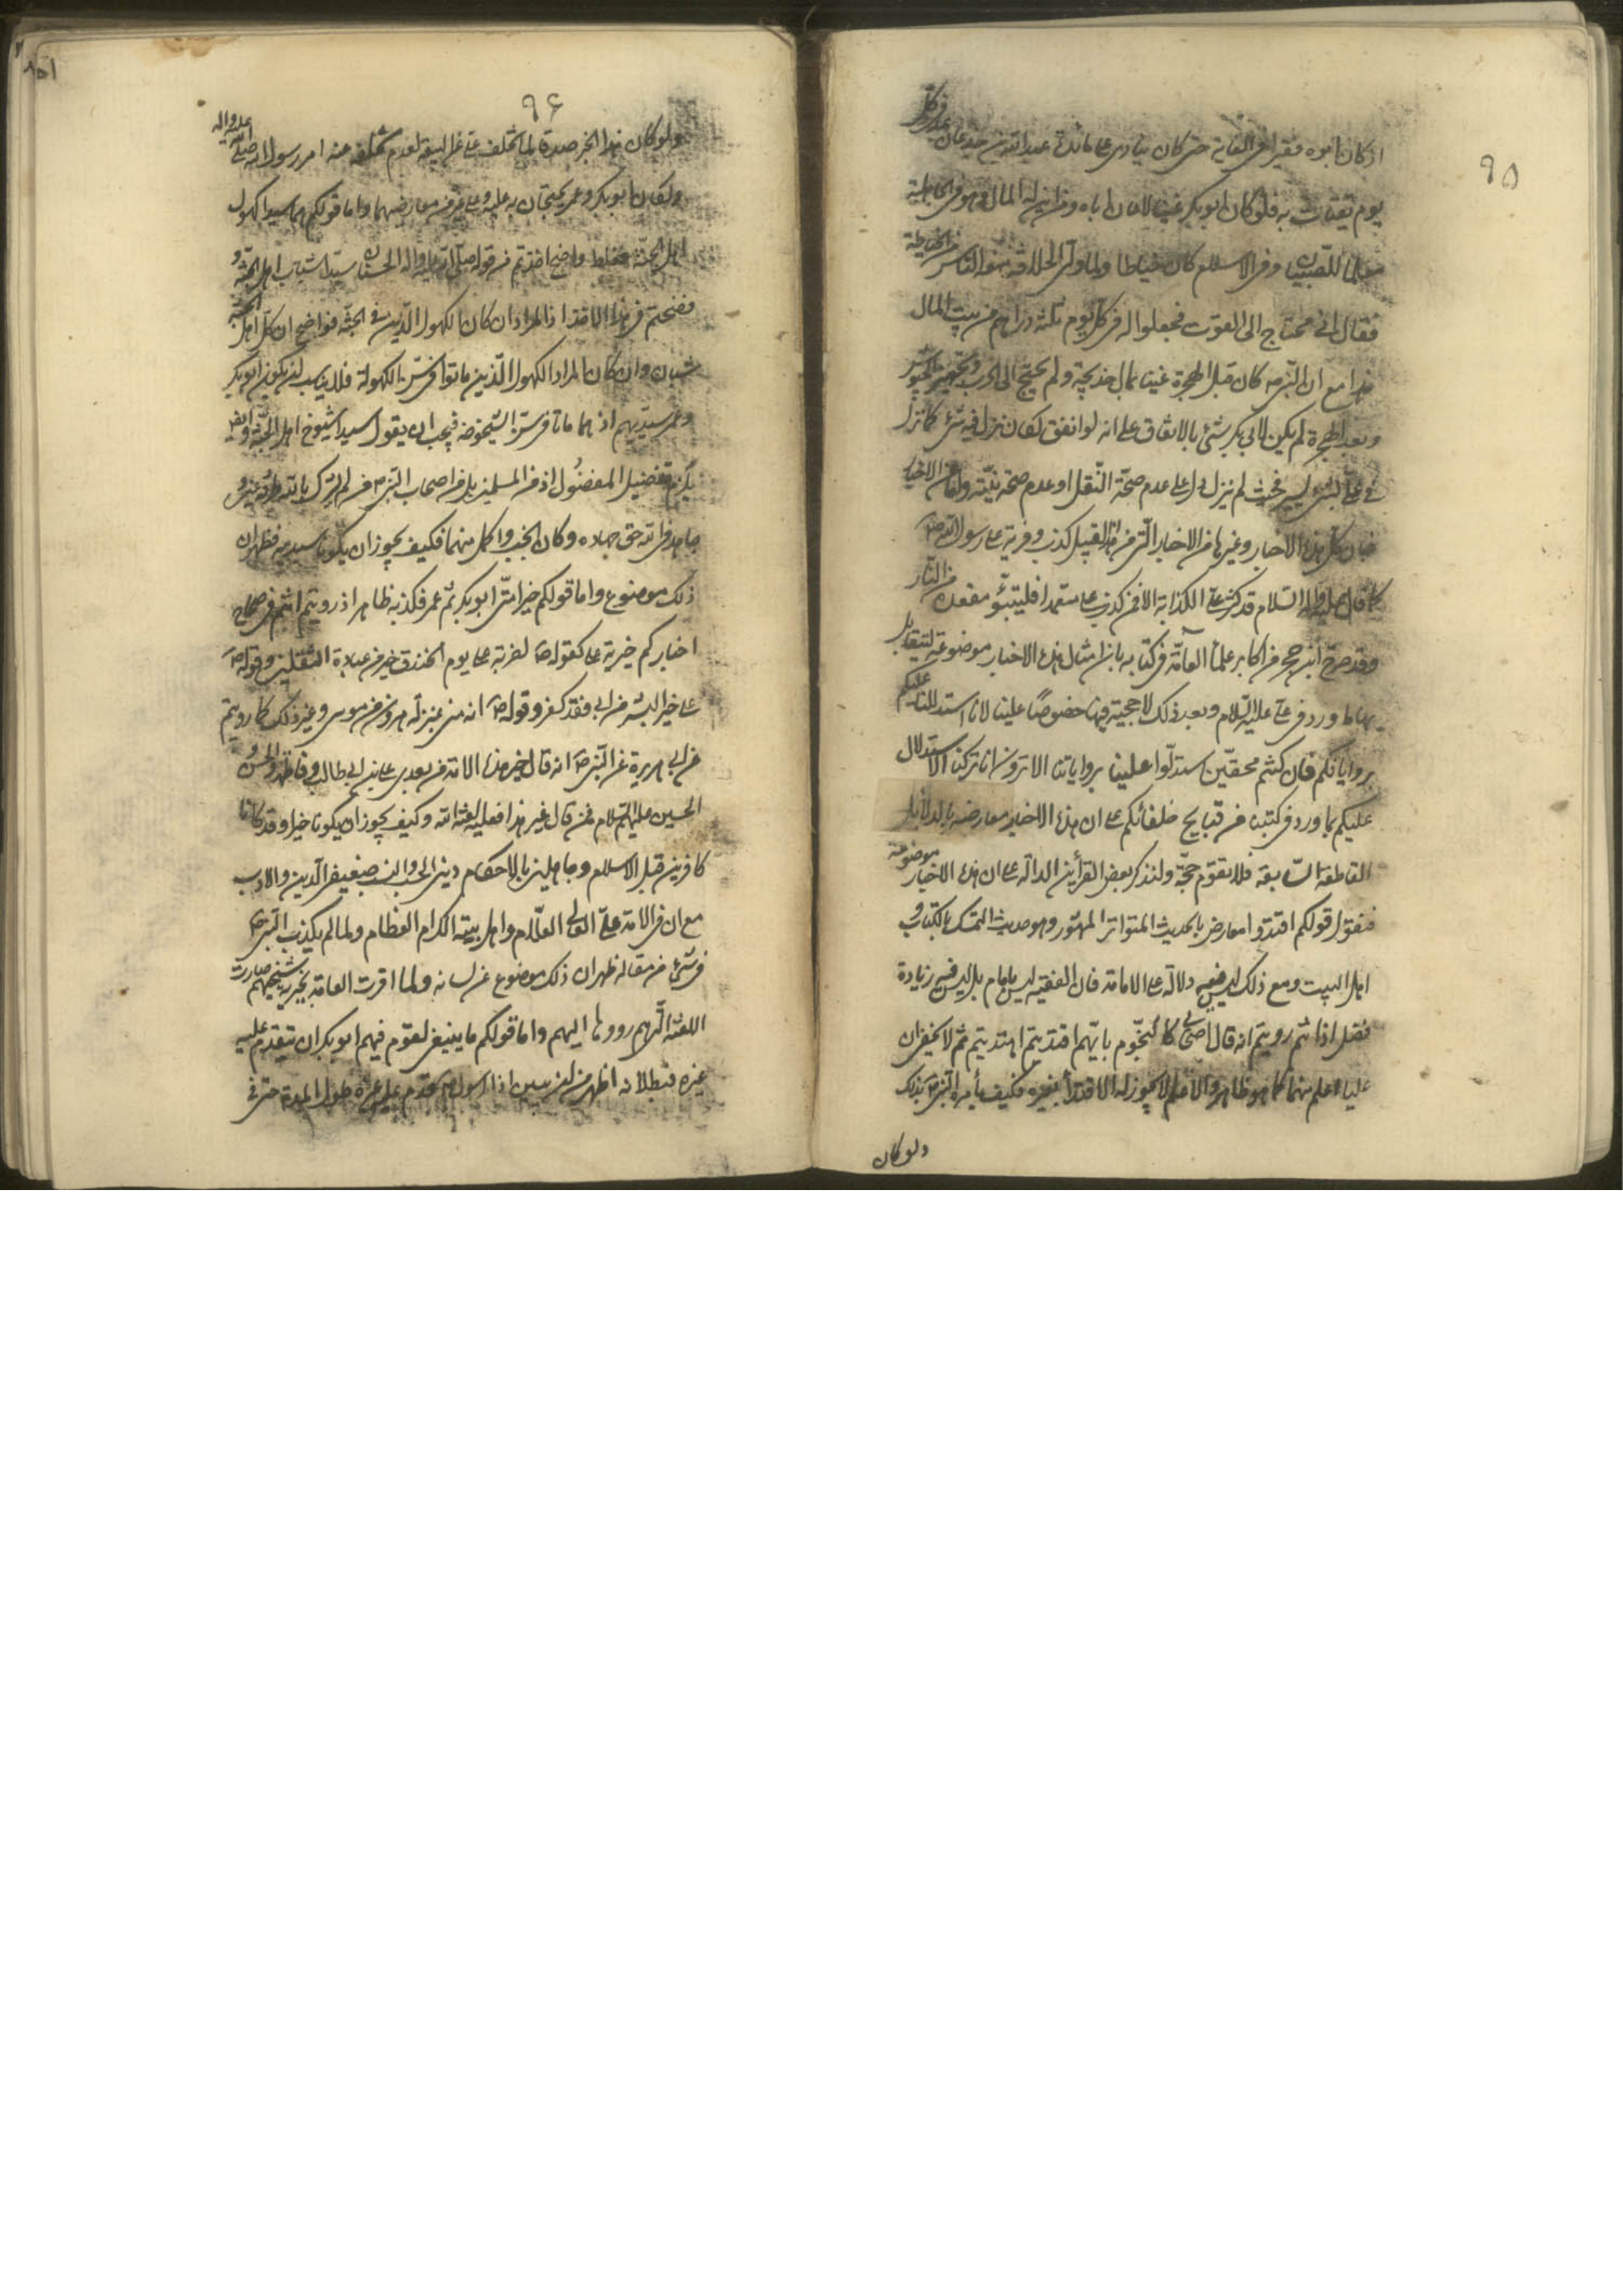 ٩٥
اذ كان ابوه فقيرا فى الغاية حتى كان ينادى على مائدة عبد الله بن جدعان كل
يوم يقتات به فلو كان ابوبكر غنيا لاعان اباه ومن اين له المال وهو فى الجاهلية
معلما للصبيان وفى الاسلام كان خياطا ولما ولى الخلافة منعه الناس من الخياطة
فقال انى محتاج الى القوت فجعلوا له فى كل يوم ثلثة دراهم من بيت المال
هذا مع ان النبى ص كان قبل الهجرة غنيا بمال خديجة ولم يحتج الى الحرب وتجهيز الجيوش
وبعد الهجرة لم يكن لابى بكر شئ بالاتفاق على انه لو انفق لكان نزل فيه شئ كما نزل
فى على لشئ يسير فحيث لم ينزل دل على عدم صحة النقل او عدم صحة نيته واما الاخبار
فان كل هذه الاخبار وغيرها من الاخبار التى من هذا القبيل كذب وفرية على رسول الله ص
كما قال عليه واله السلام قد كثرت على الكذابة الا فمن كذب على متعمدا فليتبوء مقعده من النار
وقد صرح ابن حجر من اكابر علماء العامة فى كتابه بان امثال هذه الاخبار موضوعة ليتقابل
بها ما ورد فى على عليه السلام وبعد ذلك لا حجية فيها خصوصا علينا لانا استدللنا عليكم
برواياتكم فان كنتم محقين استدلوا علينا برواياتنا الا ترون انا تركنا الاستدلال
عليكم بما ورد فى كتبنا من قبايح خلفائكم على ان هذه الاخبار معارضة بالدلائل
القاطعة السابقة فلا تقوم حجة ولنذكر بعض القرائن الدالة على ان هذه الاخبار موضوعة
فنقول قولكم اقتدوا معارض بالحديث المتواتر المشهور وهو حديث التمسك بالكتاب و
اهل البيت ومع ذلك ليس فيه دلالة على الامامة فان الفقيه ليس بامام بل ليس فيه زيادة
فضل اذ انتم رويتم انه قال اصحابى كالنجوم بايهم اقتديتم اهتديتم ثم لا يخفى ان
عليا اعلم منهما كما هو ظاهر والاعلم لا يجوز له الاقتداء بغيره فكيف يأمره النبى ص بذلك
ولو كان
٩٦
ولو كان هذا الخبر صدقا لما تخلف على عن البيعة لعدم تخلفه عنه امر رسول الله صلى الله عليه واله
ولكان ابوبكر وعمر يحتجان به عليه وعلى غيره من معارضيهما واما قولكم هما سيدا كهول
اهل الجنة فغلط واضح اخذتم من قوله صلى الله عليه واله الحسنان سيدا شباب اهل الجنة و
فضحتم فى هذا الاخذ اذ المراد ان كان الكهول الذين فى الجنة فواضح ان كل اهل الجنة
شبان وان كان المراد الكهول الذين ماتوا فى سن الكهولة فلا يناسب ان يكون ابوبكر
وعمر سيديهم اذ هما ماتا فى سن الشيخوخة فيجب ان يقول سيدا شيوخ اهل الجنة وايضا
يلزم تفضيل المفضول اذ من المسلمين بل من اصحاب النبى ص من لم يشرك بالله طرفة عين و
جاهد فى الله حق جهاده وكان انجب واكمل منهما فكيف يجوز ان يكونا سيديه فظهر ان
ذلك موضوع واما قولكم خير امتى ابوبكر ثم عمر فكذبه ظاهر اذ رويتم انتم فى صحاح
اخباركم خيرية على كقوله ص لضربة على يوم الخندق خير من عبادة الثقلين وقوله ص
على خير البشر من ابى فقد كفر وقوله ص انه منى بمنزلة هرون من موسى وغير ذلك كما رويتم
عن ابى هريرة عن النبى ص انه قال خير هذه الامة من بعدى على بن ابى طالب وفاطمة والحسن و
الحسين عليهم السلام فمن قال غير هذا فعليه لعنة الله وكيف يجوز ان يكونا خيرا وقد كانا
كافرين قبل الاسلام وجاهلين بالاحكام دينى الحسب والنسب ضعيفى الدين والادب
مع ان فى الامة على العالى العلام واهل بيته الكرام العظام ولما لم يكذب النبى ص
فى شئ من مقاله ظهر ان ذلك موضوع عن لسانه ولما اقرت العامة بخيرية شيخيهم صارت
اللعنة التى هم رووها اليهم واما قولكم ما ينبغى لقوم فيهم ابوبكر ان يتقدم عليه
غيره فبطلانه اظهر من ان يبين اذ الرسول ص قدم عليه غيره طول المدة حتى فى